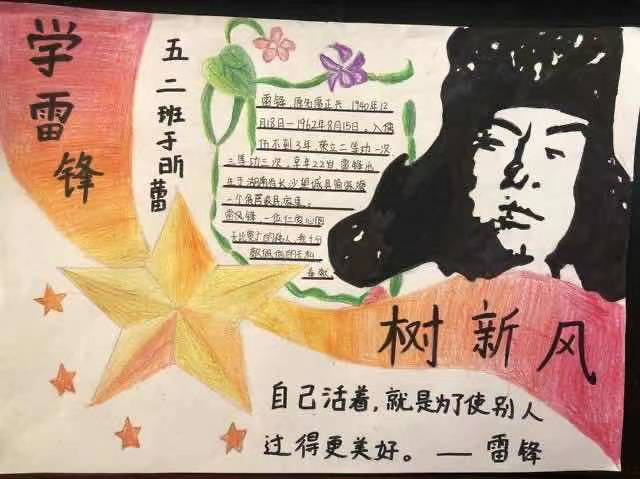 学雷锋
五二班于昕蕾
雷锋,原名雷正兴 1940年12
月18日—1962年8月15日。入伍
仅不到3年 荣立二等功一次
三等功三次,享年22岁 雷锋出
生于湖南省长沙望城县简家塘
一个贫苦农民家里。
雷锋 一位仁爱
的
我十分
敬佩他的无私
奉献
树新风
自己活着,就是为了使别人
过得更美好。——雷锋